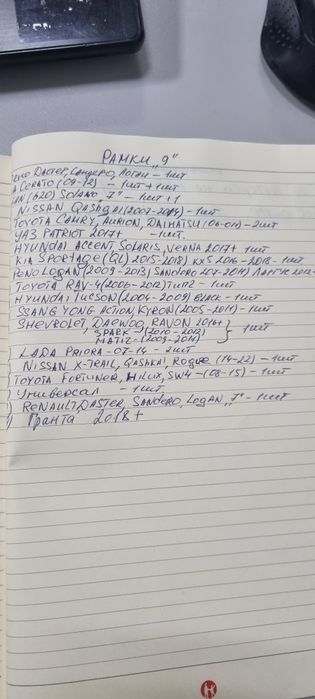 РАМКИ „9"
Дастер, Сандеро, Логан - 1шт
Cerato (09-12) - 1шт + 1шт
(620) Solano, 7" - 1шт + 1
NISSAN Qashqai (2007-2014) - 1шт
TOYOTA CAMRY, AURION, DAIHATSU (06-011) - 2шт
УАЗ PATRIOT 2017+ - 1шт.
HYUNDAI ACCENT SOLARIS, VERNA 2017+ 1шт
KIA SPORTAGE (QL) 2015-2018) KX5 2016-2018 - 1шт
LOGAN (2009-2013) SANDERO
TOYOTA RAV-4 (2006-2012) - 1шт
HYUNDAI TUCSON (2004-2009) BLACK - 1шт
SSANG YONG ACTION, KYRON (2005-2011) - 1шт
SHEVROLET, DAEWOO, RAVON 2016+
SPARK - (2010-2018) 1шт
MATIZ - (2009-2014)
) LADA PRIORA - 07-14 - 2шт
NISSAN X-TRAIL, QASHKAI, ROGUE (14-22) - 1шт
TOYOTA FORTUNER, HILUX, SW4 - (08-15) - 1шт
) Универсал - 1шт
) RENAULT DASTER, SANDERO, LOGAN „7" - 1шт
) Гранта 2018+